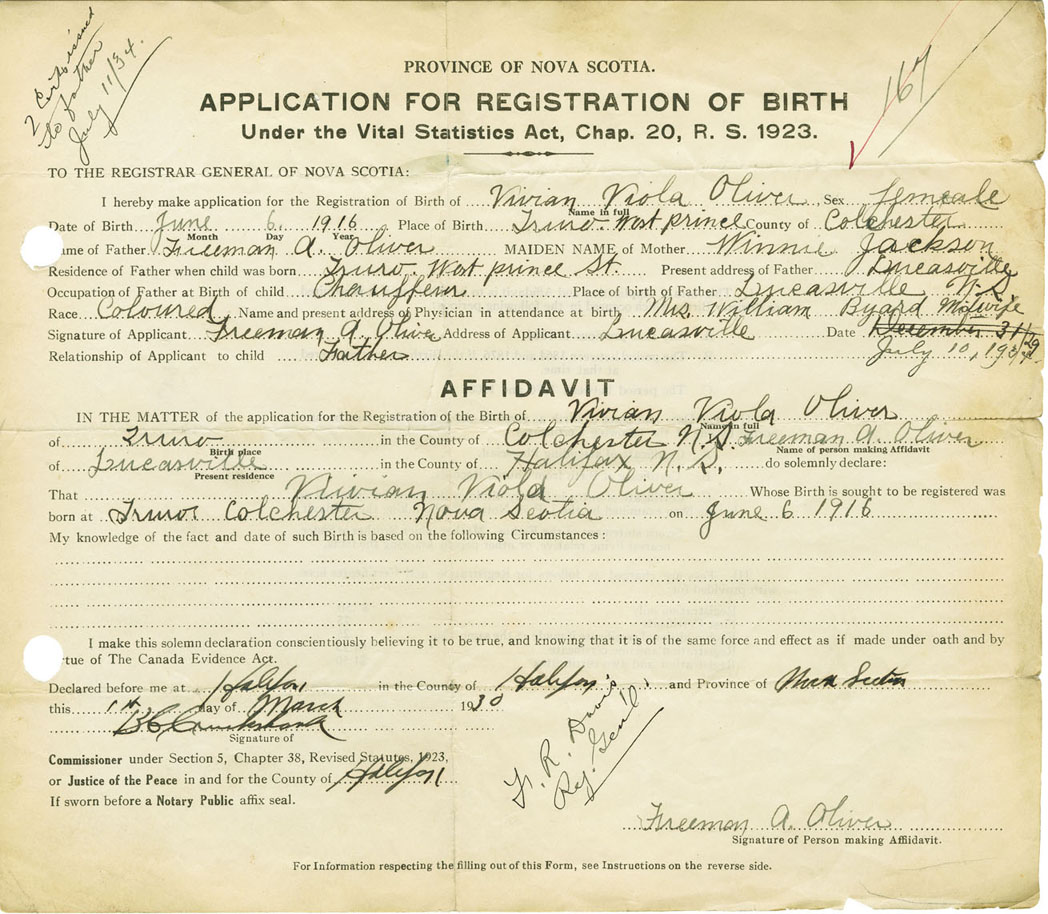 2 Certs issued
to father
July 11/34.
167
PROVINCE OF NOVA SCOTIA.
APPLICATION FOR REGISTRATION OF BIRTH
Under the Vital Statistics Act, Chap. 20, R. S. 1923.
TO THE REGISTRAR GENERAL OF NOVA SCOTIA:
I hereby make application for the Registration of Birth of Vivian Viola Oliver Sex Femeale
Name in full
Date of Birth June 6, 1916 Place of Birth Truro. West prince County of Colchester
Month Day Year
ame of Father Freeman A. Oliver MAIDEN NAME of Mother Winnie Jackson
Residence of Father when child was born Truro. West prince St. Present address of Father Lucasville
Occupation of Father at Birth of child Chauffeur Place of birth of Father Lucasville N.S
Race Coloured Name and present address of Physician in attendance at birth Mrs. William Byard Midwife
Signature of Applicant Freeman A. Oliver Address of Applicant Lucasville Date December 31/29
Relationship of Applicant to child Father July 10, 1934.
AFFIDAVIT
IN THE MATTER of the application for the Registration of the Birth of Vivian Viola Oliver
Name in full
of Truro in the County of Colchester N.S. Freeman A. Oliver
Birth place Name of person making Affidavit
of Lucasville in the County of Halifax N.S. do solemnly declare:
Present residence
That Vivian Viola Oliver Whose Birth is sought to be registered was
born at Truro Colchester Nova Scotia on June 6 1916
My knowledge of the fact and date of such Birth is based on the following Circumstances:
I make this solemn declaration conscientiously believing it to be true, and knowing that it is of the same force and effect as if made under oath and by
rtue of The Canada Evidence Act.
Declared before me at Halifax in the County of Halifax and Province of Nova Scotia
this 1st day of March 1930
Signature of
Commissioner under Section 5, Chapter 38, Revised Statutes, 1923,
or Justice of the Peace in and for the County of Halifax
If sworn before a Notary Public affix seal.
R. Davis
Reg. Gen'l.
Freeman A. Oliver
Signature of Person making Affidavit.
For Information respecting the filling out of this Form, see Instructions on the reverse side.